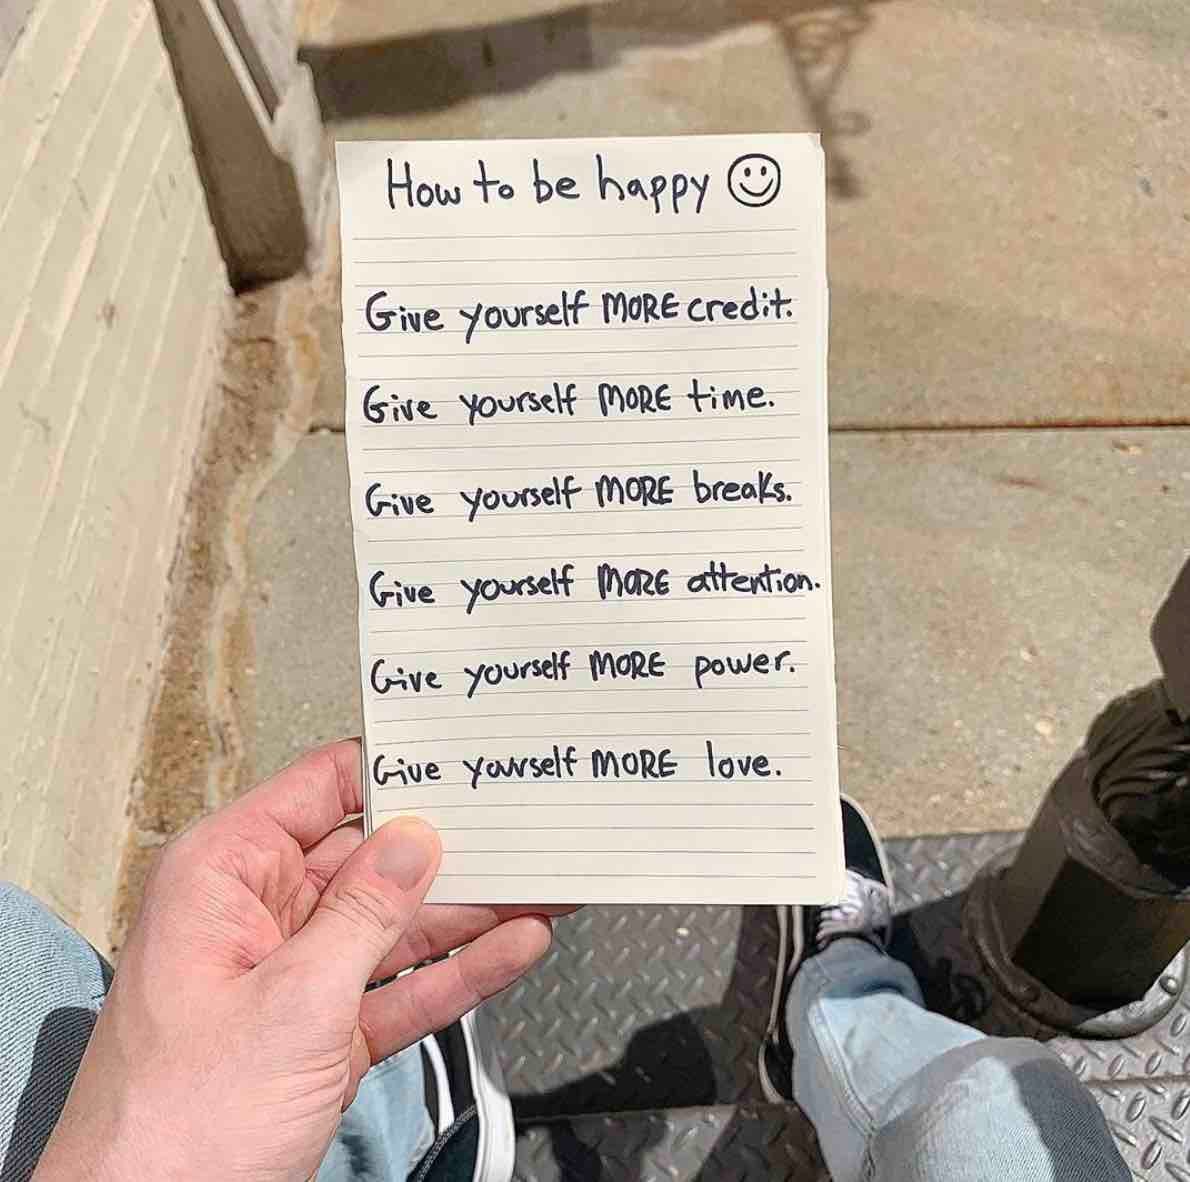 How to be happy
Give yourself MORE credit.
Give yourself MORE time.
Give yourself MORE breaks.
Give yourself MORE attention.
Give yourself MORE power.
Give yourself MORE love.